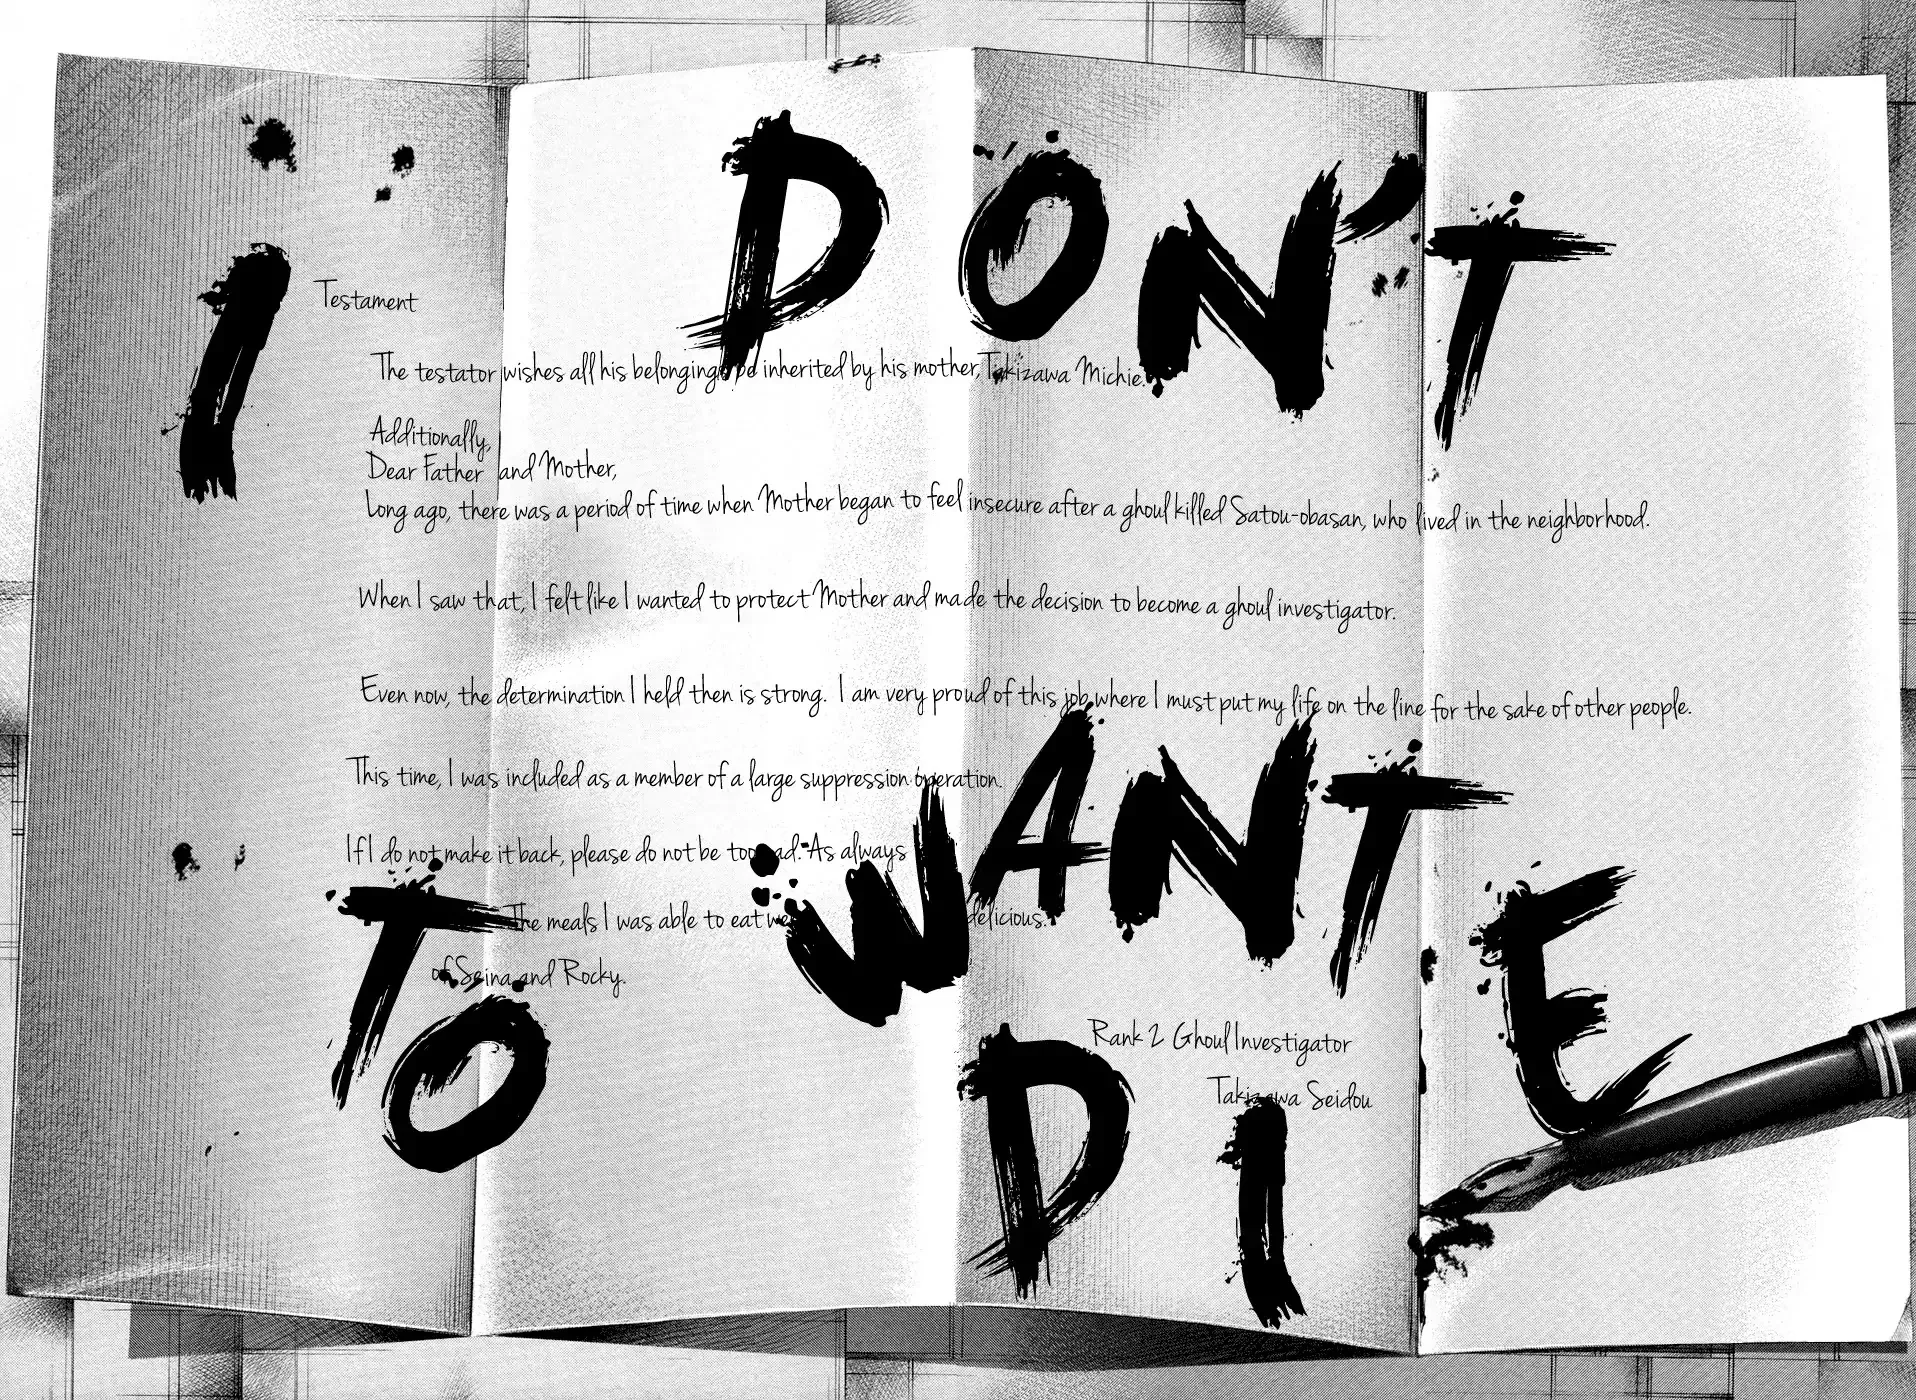 I DON'T
Testament
The testator wishes all his belongings be inherited by his mother, Takizawa Michie.
Additionally,
Dear Father and Mother,
Long ago, there was a period of time when Mother began to feel insecure after a ghoul killed Satou-obasan, who lived in the neighborhood.
When I saw that, I felt like I wanted to protect Mother and made the decision to become a ghoul investigator.
Even now, the determination I held then is strong. I am very proud of this job where I must put my life on the line for the sake of other people.
This time, I was included as a member of a large suppression operation.
If I do not make it back, please do not be too sad. As always
The meals I was able to eat delicious.
of Seina and Rocky.
WANT
TO
Rank 2 Ghoul Investigator
Takizawa Seidou
DIE